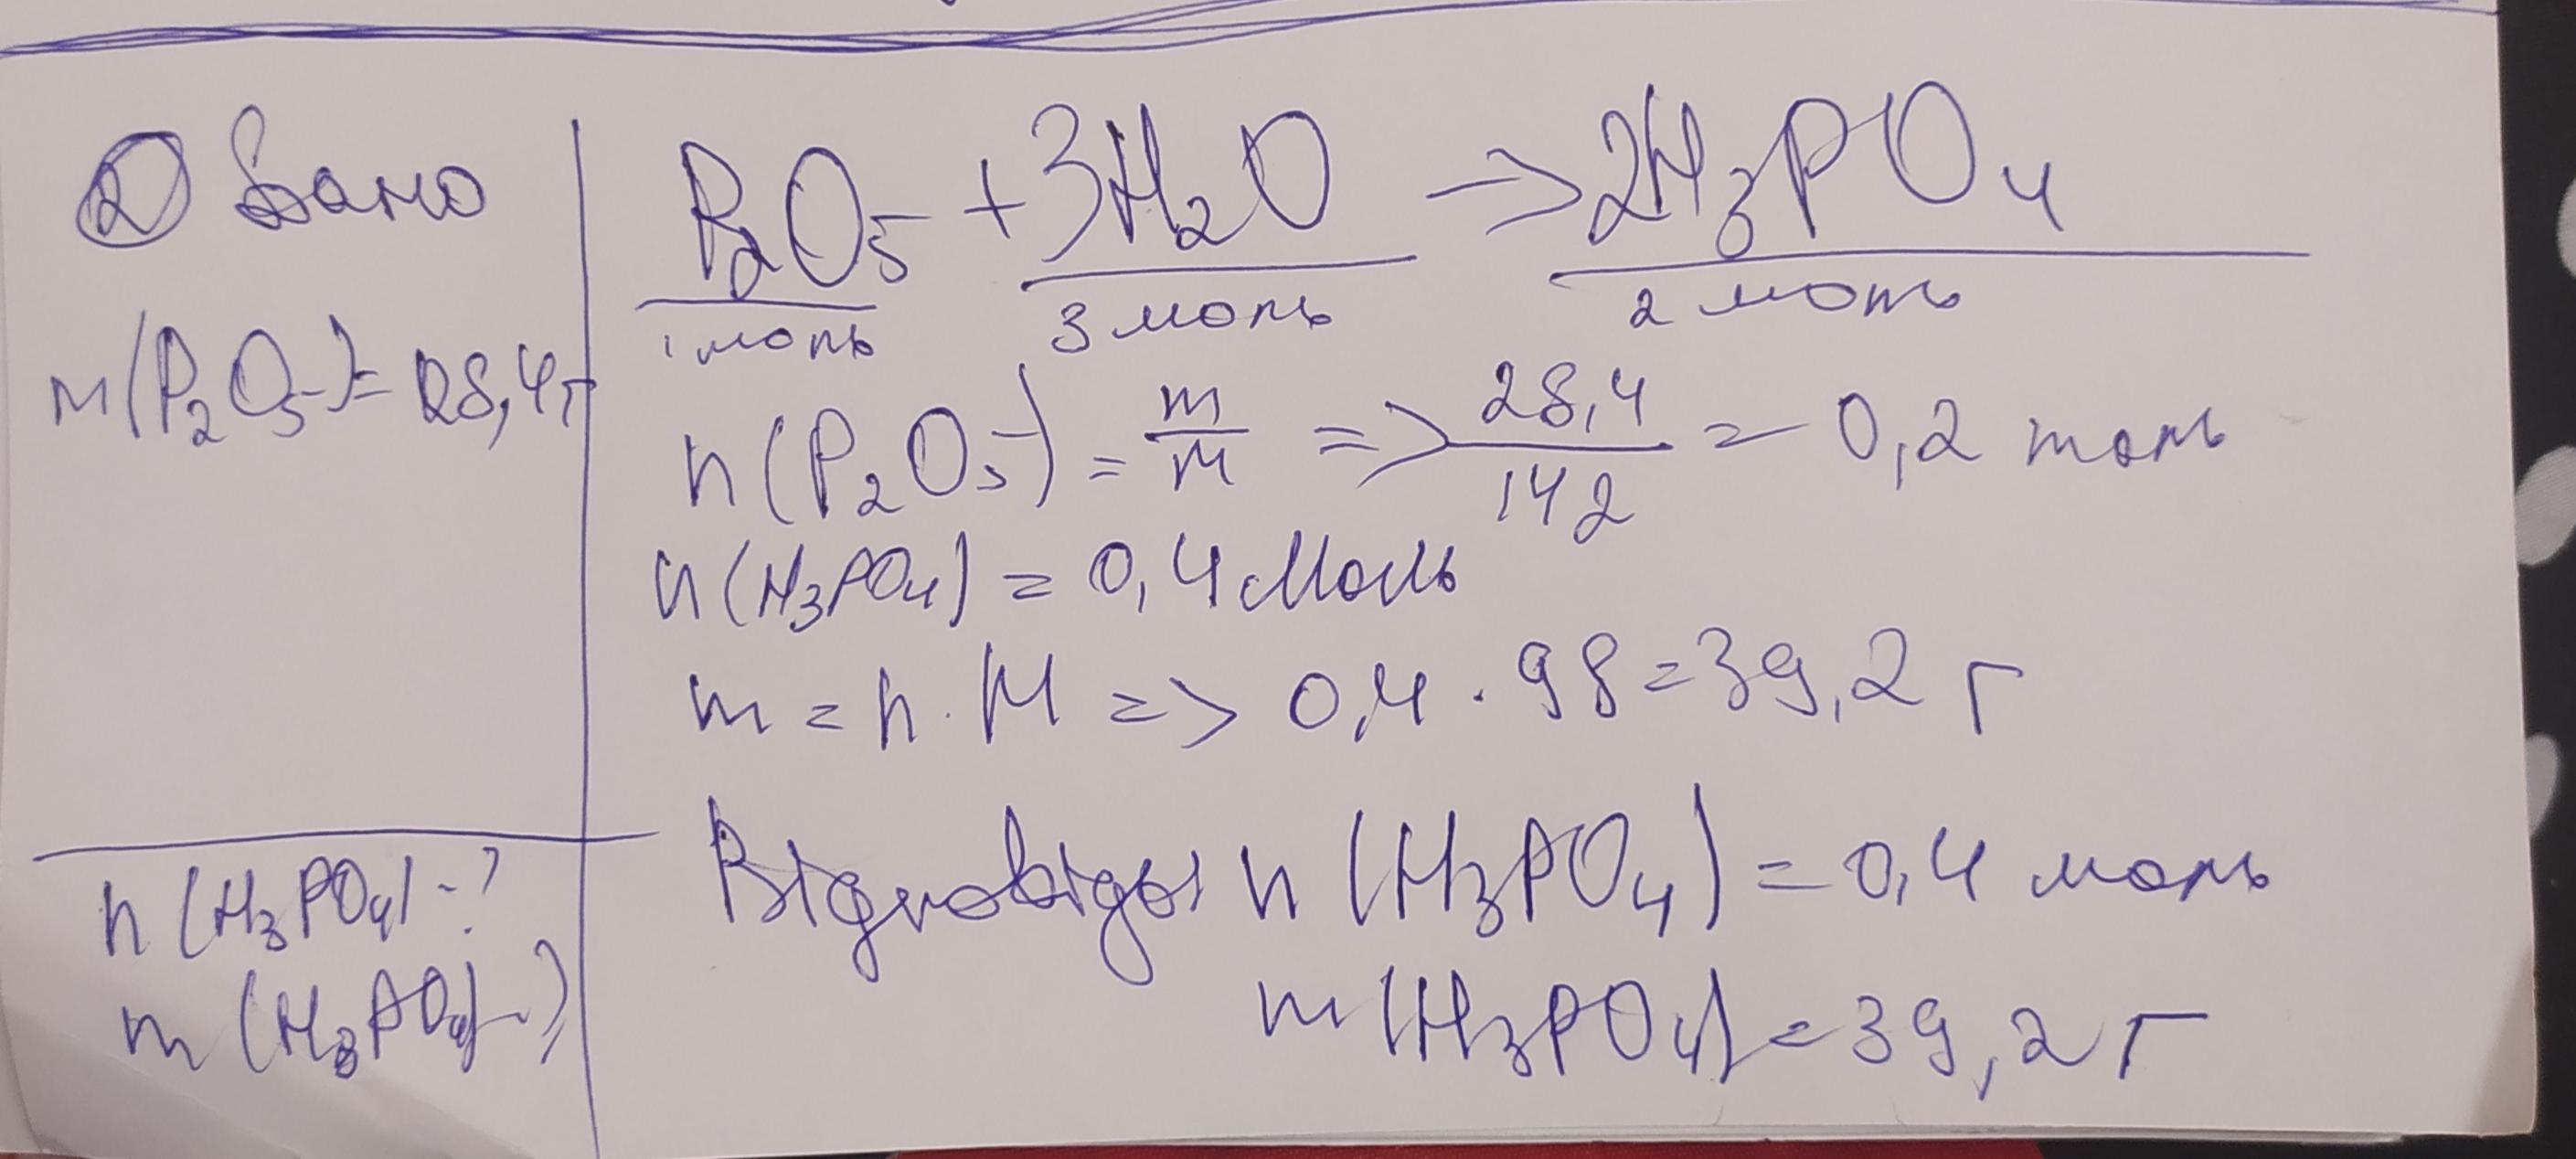 ② Дано
m(P₂O₅) = 28,4г
n(H₃PO₄) - ?
m(H₃PO₄) - ?
P₂O₅ + 3H₂O → 2H₃PO₄
1 моль 3 моль 2 моль
n(P₂O₅) = m/M => 28,4/142 = 0,2 моль
n(H₃PO₄) = 0,4 Моль
m = n · M => 0,4 · 98 = 39,2 г
Відповідь n(H₃PO₄) = 0,4 моль
m(H₃PO₄) = 39,2 г